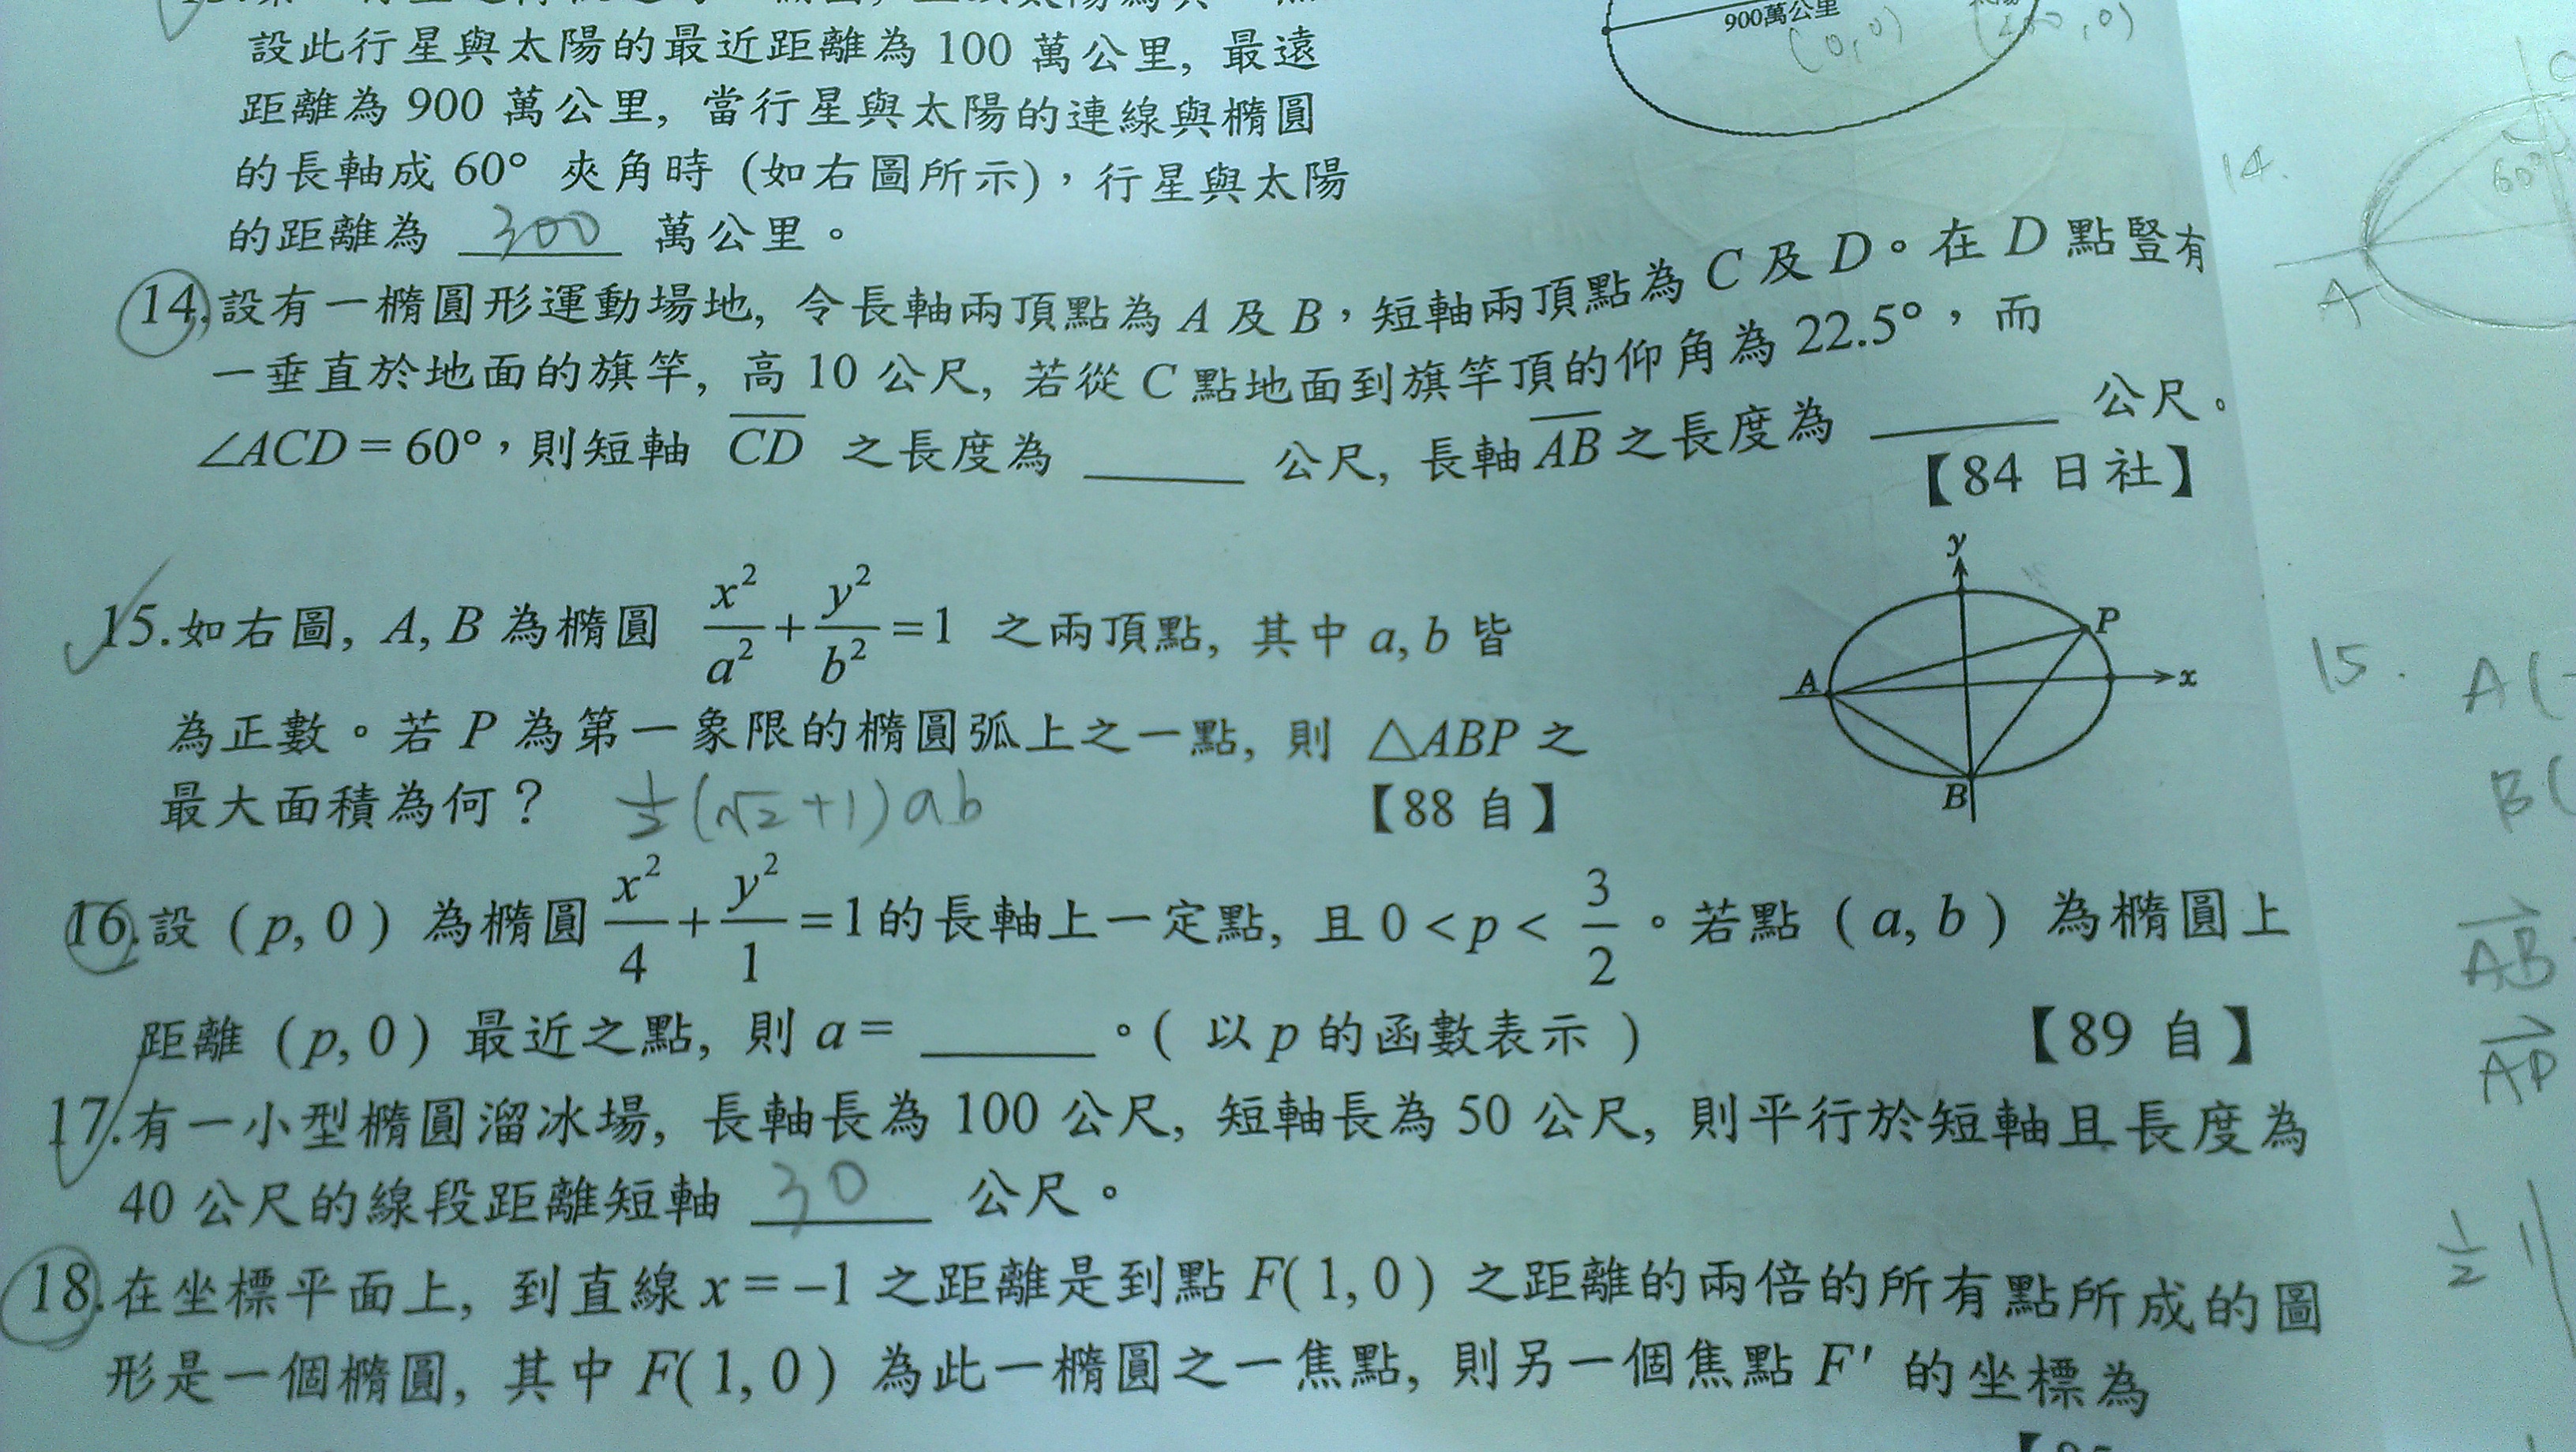 設此行星與太陽的最近距離為 100 萬公里, 最遠
900萬公里
(0,0)
距離為 900 萬公里, 當行星與太陽的連線與橢圓
的長軸成 60° 夾角時 (如右圖所示)，行星與太陽
的距離為 300 萬公里。
14.
60°
A
14.設有一橢圓形運動場地, 令長軸兩頂點為 A 及 B，短軸兩頂點為 C 及 D。在 D 點豎有
一垂直於地面的旗竿, 高 10 公尺, 若從 C 點地面到旗竿頂的仰角為 22.5°，而
∠ACD = 60°，則短軸 \overline{CD} 之長度為 ______ 公尺, 長軸 \overline{AB} 之長度為 ______ 公尺。
【84 日社】
15.如右圖, A, B 為橢圓 x²/a² + y²/b² = 1 之兩頂點, 其中 a, b 皆
為正數。若 P 為第一象限的橢圓弧上之一點, 則 △ABP 之
最大面積為何？ ½(√2+1)ab 【88 自】
y
P
A
x
B
15.
A(
B(
\overrightarrow{AB}
\overrightarrow{AP}
½
16.設 ( p, 0 ) 為橢圓 x²/4 + y²/1 = 1 的長軸上一定點, 且 0 < p < 3/2 。若點 ( a, b ) 為橢圓上
距離 ( p, 0 ) 最近之點, 則 a = ______ 。( 以 p 的函數表示 ) 【89 自】
17.有一小型橢圓溜冰場, 長軸長為 100 公尺, 短軸長為 50 公尺, 則平行於短軸且長度為
40 公尺的線段距離短軸 30 公尺。
18.在坐標平面上, 到直線 x = –1 之距離是到點 F( 1, 0 ) 之距離的兩倍的所有點所成的圖
形是一個橢圓, 其中 F( 1, 0 ) 為此一橢圓之一焦點, 則另一個焦點 F′ 的坐標為